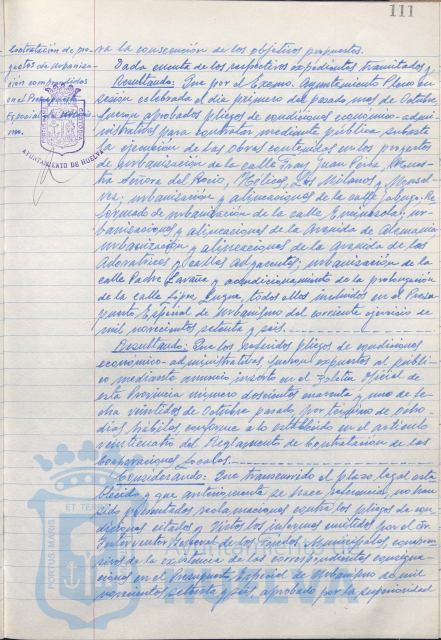 111
Contratación de pro-
yectos de urbaniza-
ción comprendidos
en el Presupuesto
Especial de Urbanis-
mo.
AYUNTAMIENTO DE HUELVA
ra la consecución de los objetivos propuestos.
Dada cuenta de los respectivos expedientes tramitados y
Resultando: Que por el Excmo. Ayuntamiento Pleno en
sesión celebrada el día primero del pasado mes de Octubre
fueron aprobados pliegos de condiciones económico-admi-
nistrativas para contratar mediante pública subasta
la ejecución de las obras contenidas en los proyectos
de urbanización de la calle Fray Juan Pérez, Nues-
tra Señora del Rocío, Los Milanos y
urbanización y alineaciones de la calle Re-
formado de urbanización de la calle ur-
banizaciones y alineaciones de la Avenida de Alemania
urbanización y alineaciones de la avenida de las
Adoratrices y calles adyacentes; urbanización de la
calle Padre Laraña y acondicionamiento de la prolongación
de la calle todos ellos incluidos en el Presu-
puesto Especial de Urbanismo del corriente ejercicio de
mil novecientos setenta y seis.
Resultando: Que los referidos pliegos de condiciones
económico-administrativas fueron expuestos al públi-
co mediante anuncio inserto en el Boletín Oficial de
esta Provincia número doscientos cuarenta y uno de fe-
cha veintidós de Octubre pasado, por término de ocho
días hábiles conforme a lo establecido en el artículo
veinticuatro del Reglamento de Contratación de las
Corporaciones Locales.
Considerando: Que transcurrido el plazo legal esta-
blecido y que anteriormente se hace referencia, no han
sido presentadas reclamaciones contra los pliegos de con-
diciones citados y Vistos los informes emitidos por el Sr.
Interventor de los Fondos Municipales
de la existencia de las correspondientes consigna-
ciones en el Presupuesto Especial de Urbanismo de mil
novecientos setenta y seis, aprobado por la superioridad
PORTUS MARIS ET TER
Ayuntamiento de
HUELVA